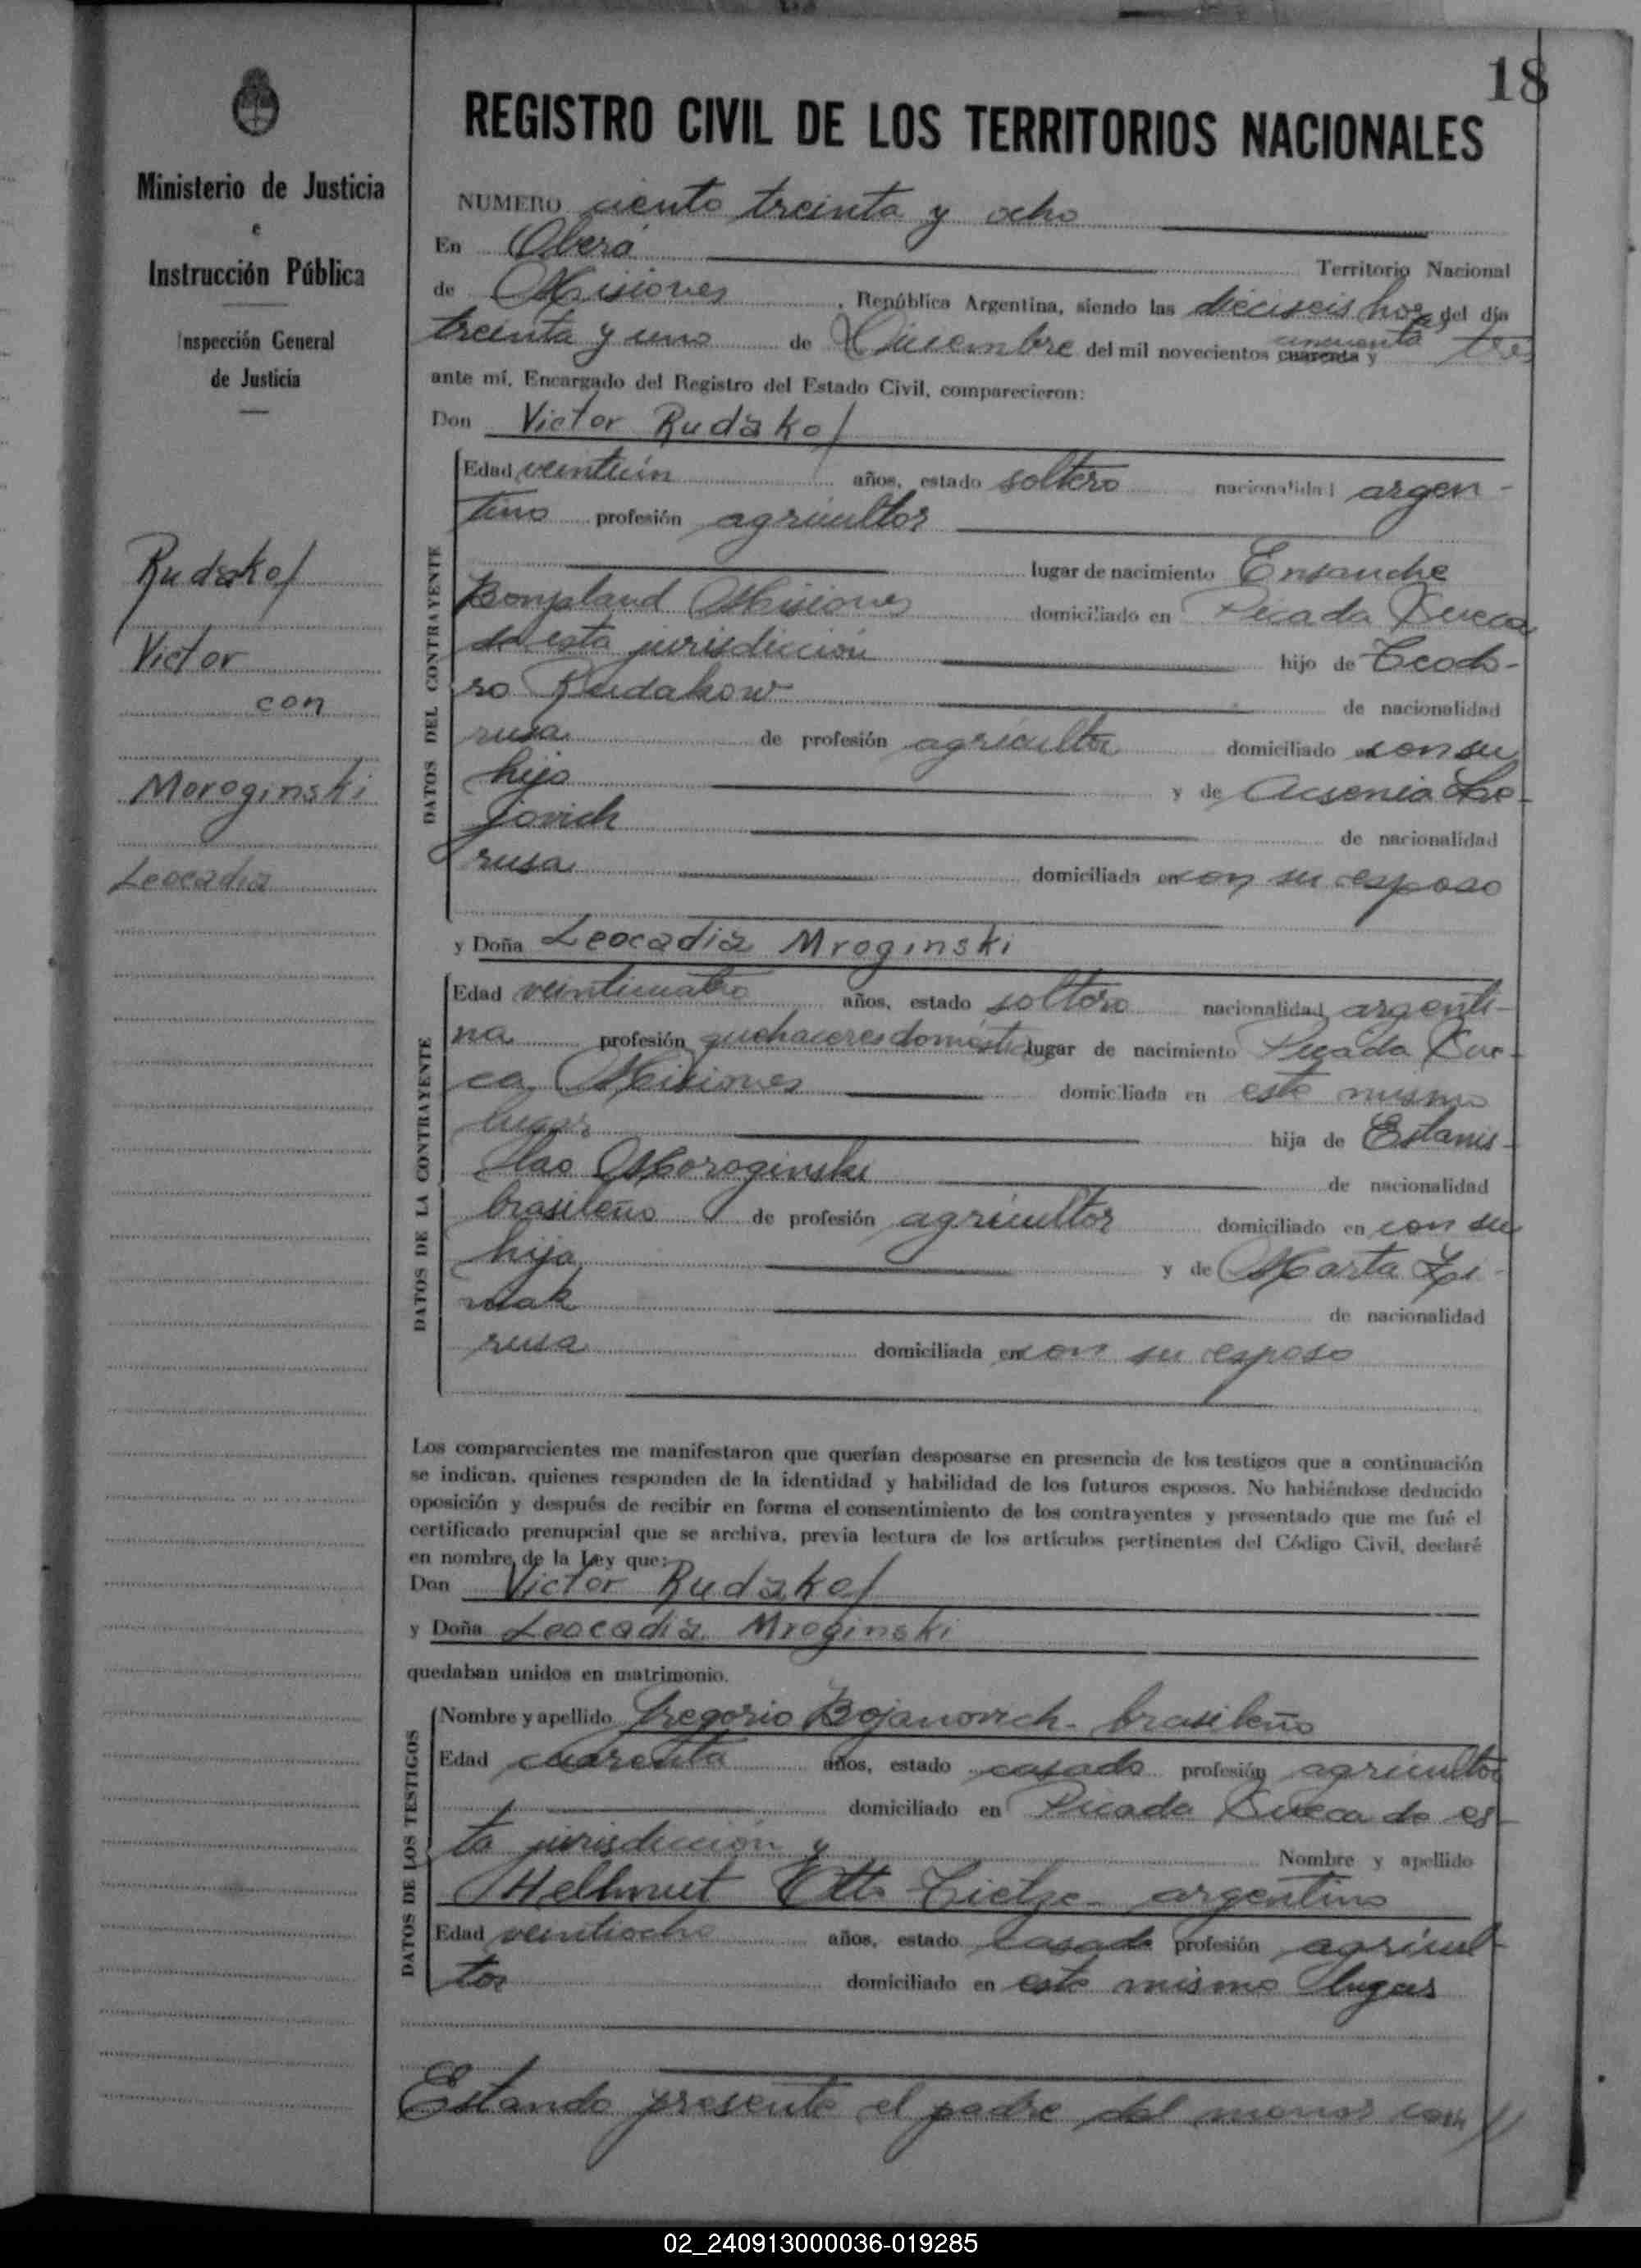 18
Ministerio de Justicia
e
Instrucción Pública
Inspección General
de Justicia
Rudakof
Victor
con
Moroginski
Leocadia
REGISTRO CIVIL DE LOS TERRITORIOS NACIONALES
NUMERO ciento treinta y ocho
En Oberá Territorio Nacional
de Misiones, República Argentina, siendo las dieciseis horas del día
treinta y uno de Diciembre del mil novecientos cuarenta cincuenta y tres
ante mí, Encargado del Registro del Estado Civil, comparecieron:
Don Victor Rudakof
DATOS DEL CONTRAYENTE
Edad veintiún años, estado soltero nacionalidad argen-
tino profesión agricultor
lugar de nacimiento Ensanche
Bonpland Misiones domiciliado en Picada Sueca
de esta jurisdicción hijo de Teodo-
ro Rudakow de nacionalidad
rusa de profesión agricultor domiciliado con su
hijo y de
jovich de nacionalidad
rusa domiciliada en con su esposo
y Doña Leocadia Mroginski
DATOS DE LA CONTRAYENTE
Edad veinticuatro años, estado soltera nacionalidad argenti-
na profesión quehaceres domésticos lugar de nacimiento Picada Sue-
ca, Misiones domiciliada en este mismo
lugar hija de Estanis-
lao Moroginski de nacionalidad
brasileño de profesión agricultor domiciliado en con su
hija y de Marta
de nacionalidad
rusa domiciliada en con su esposo
Los comparecientes me manifestaron que querían desposarse en presencia de los testigos que a continuación
se indican, quienes responden de la identidad y habilidad de los futuros esposos. No habiéndose deducido
oposición y después de recibir en forma el consentimiento de los contrayentes y presentado que me fué el
certificado prenupcial que se archiva, previa lectura de los artículos pertinentes del Código Civil, declaré
en nombre de la Ley que:
Don Victor Rudakof
y Doña Leocadia Mroginski
quedaban unidos en matrimonio.
DATOS DE LOS TESTIGOS
Nombre y apellido Gregorio Bojanovich - brasileño
Edad cuarenta años, estado casado profesión agricultor
domiciliado en Picada Sueca de es-
ta jurisdicción y Nombre y apellido
Hellmut Otto Tietze - argentino
Edad veintiocho años, estado casado profesión agricul-
tor domiciliado en este mismo lugar
Estando presente el padre del menor con //
02_240913000036-019285